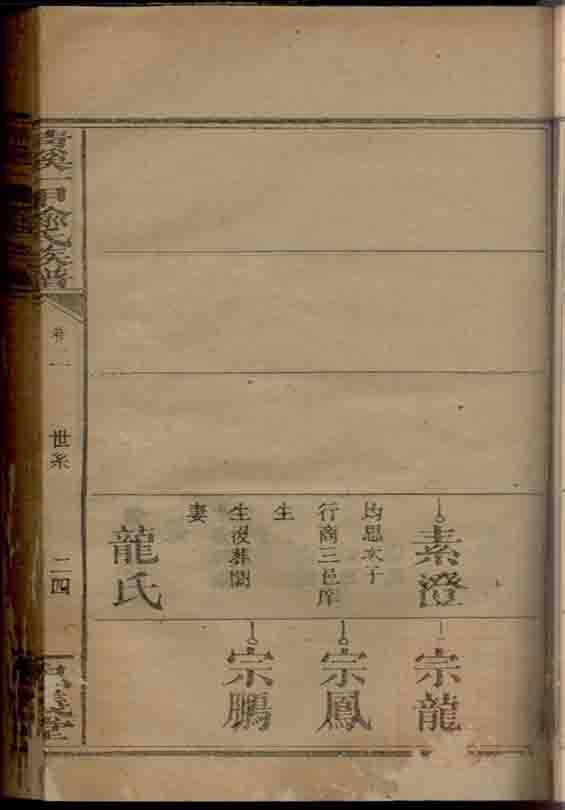 素澄
均思次子
行商三邑庠
生
生沒葬闕
妻
龍氏
宗龍
宗鳳
宗鵬
一甲
氏族譜
卷一
世系
二四